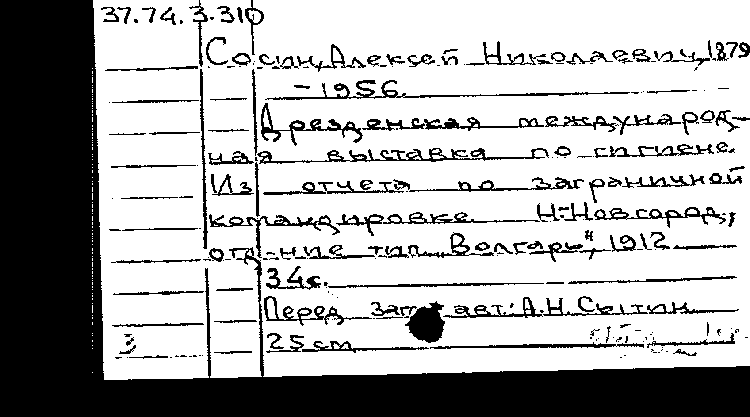 37.74.3.310
Сосин, Алексей Николаевич, 1879
-1956.
Дрезденская международ-
ная выставка по гигиене.
Из отчета по заграничной
командировке. Н-Новгород,
отд-ние тип. „Волгарь“, 1912
34с.
Перед заг. авт.: А.Н. Сытин
25 см